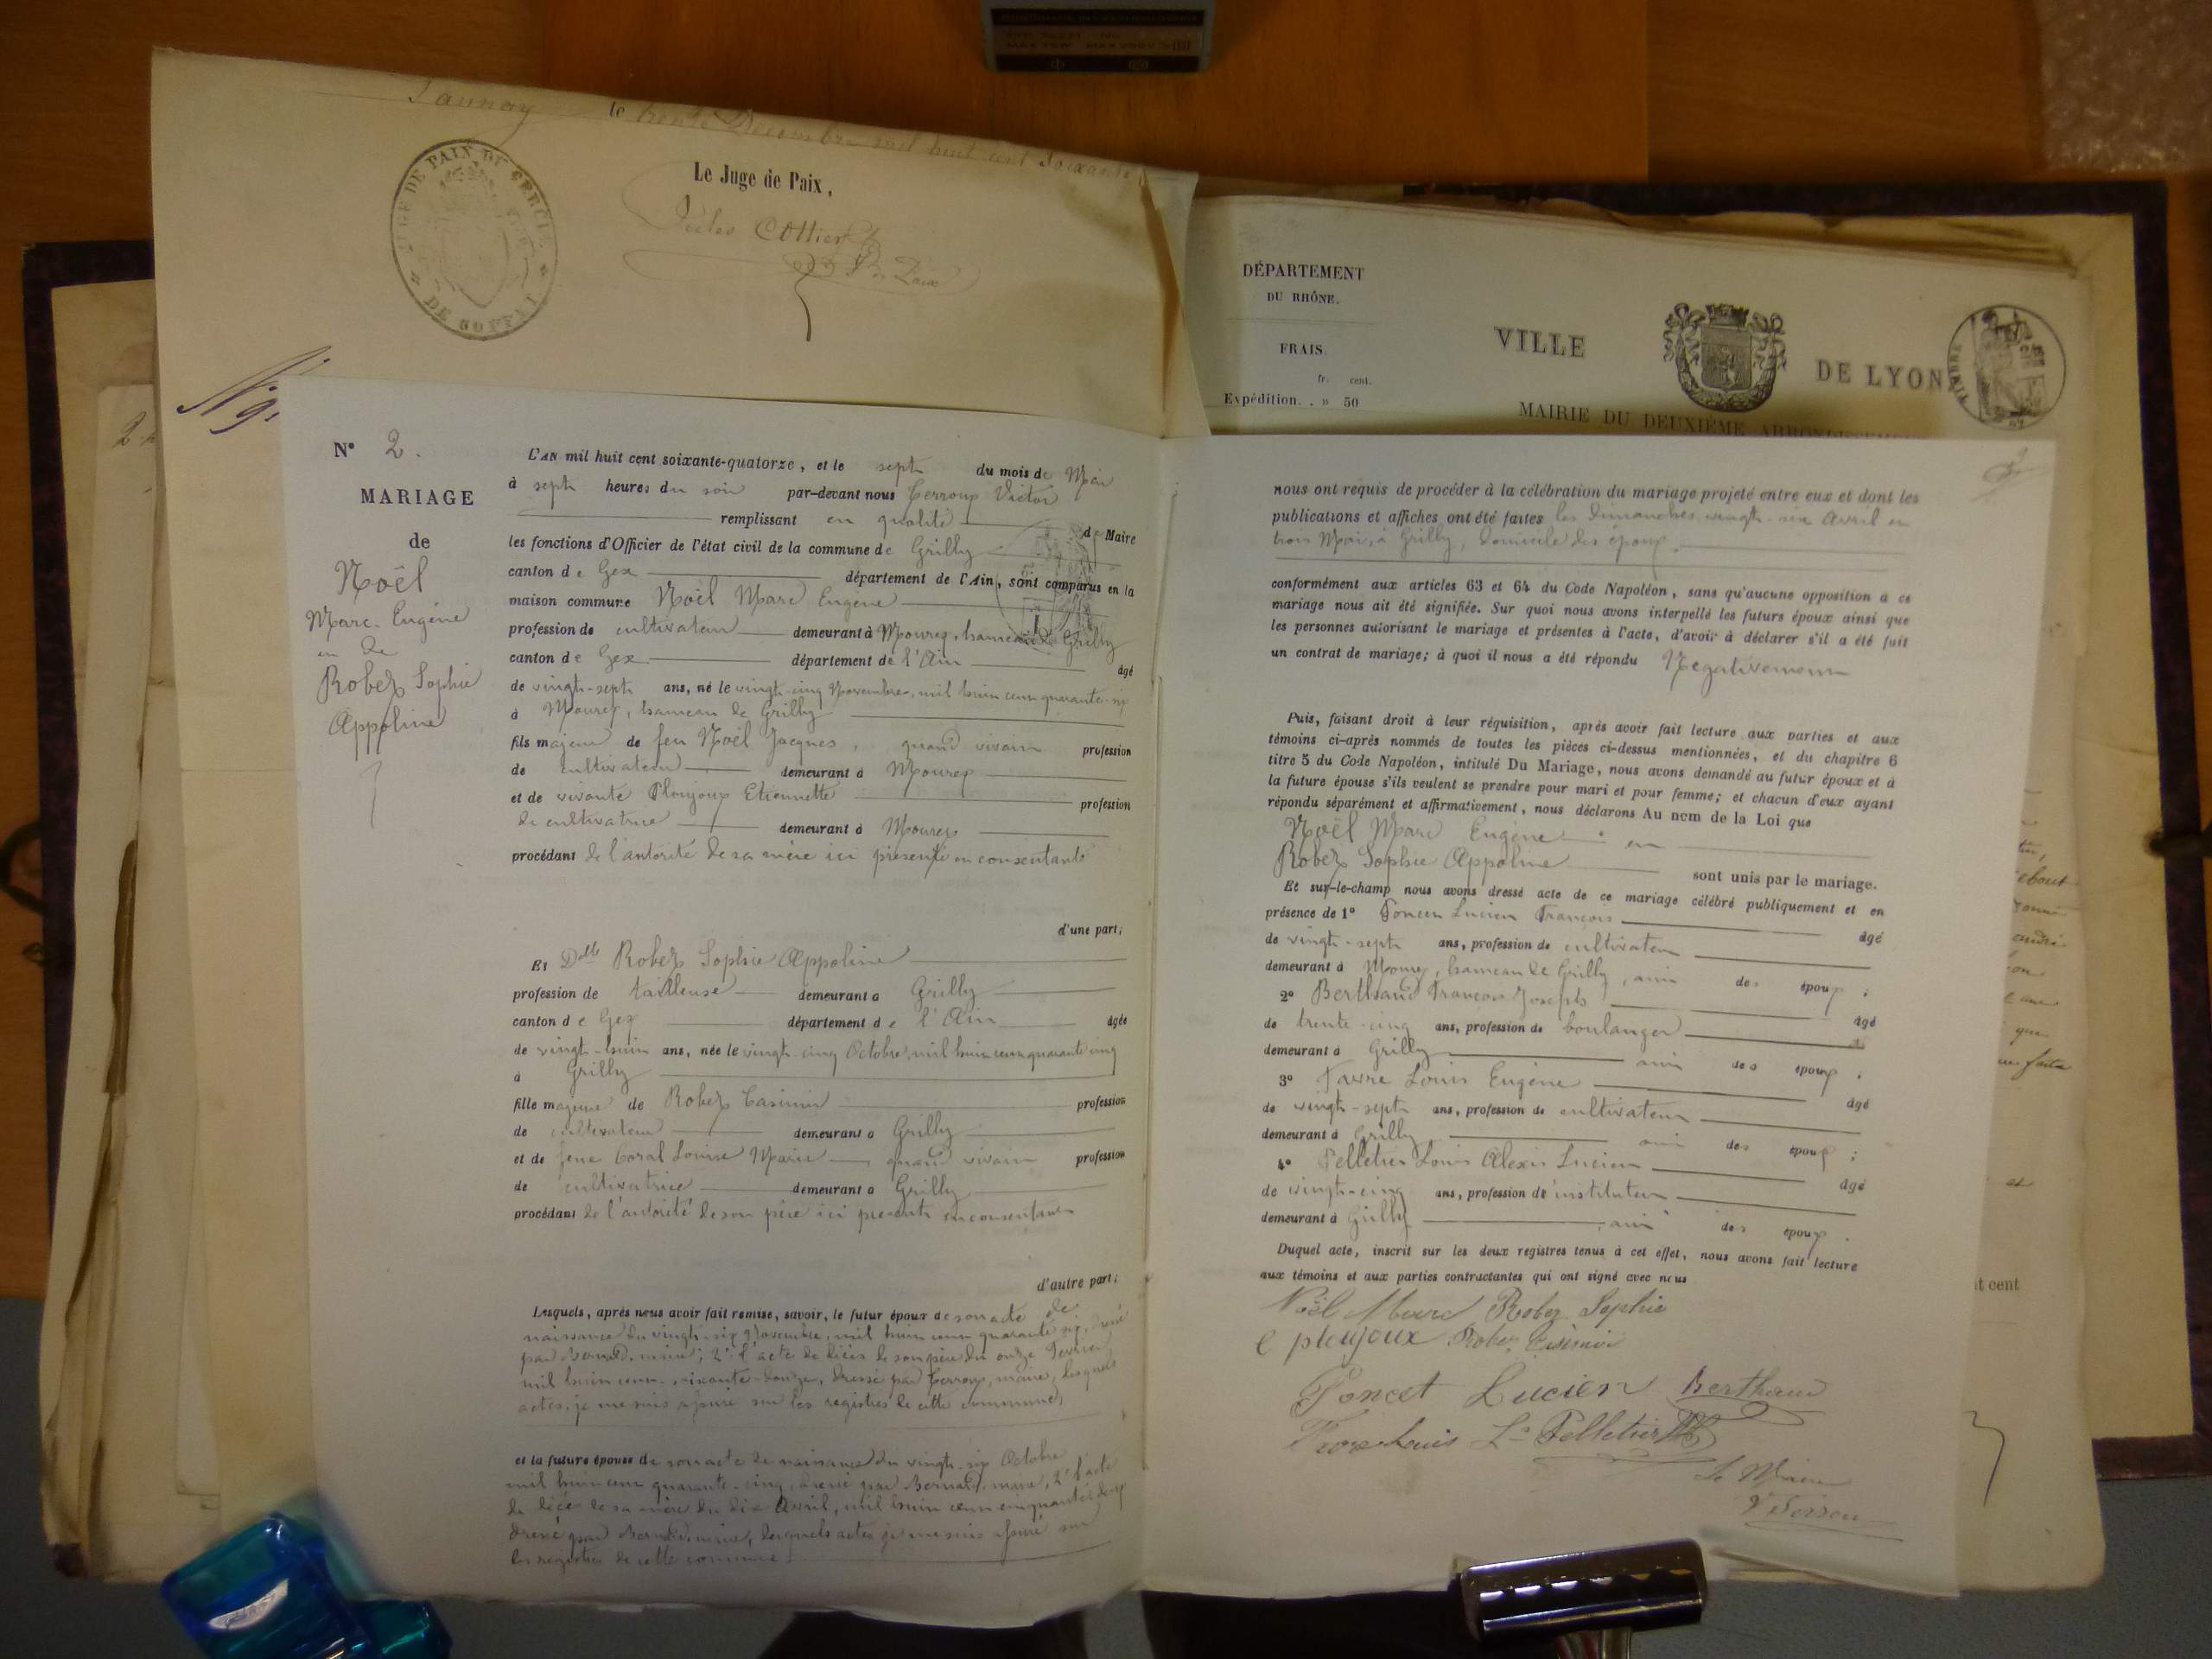 le trente Décembre mil huit cent soixante
Le Juge de Paix,
Jules
JUGE DE PAIX DU CERCLE
DE
DÉPARTEMENT
DU RHÔNE.
FRAIS.
fr. cent.
Expédition. . » 50
VILLE DE LYON
TIMBRE
MAIRIE DU DEUXIÈME
N° 2.
MARIAGE
de
Noël
Marc-Eugène
et de
Robez Sophie
Appoline
L'AN mil huit cent soixante-quatorze, et le sept du mois de Mai
à sept heures du soir par-devant nous Perroux Victor
remplissant en qualité de Maire
les fonctions d'Officier de l'état civil de la commune de Grilly
canton de Gex département de l'Ain, sont comparus en la
maison commune Noël Marc Eugène
profession de cultivateur demeurant à Mourex, hameau de Grilly
canton de Gex département de l'Ain âgé
de vingt-sept ans, né le vingt-cinq Novembre, mil huit cent quarante-six
à Mourex, hameau de Grilly
fils majeur de feu Noël Jacques, quand vivait profession
de cultivateur demeurant à Mourex
et de vivante Ploujoux Etiennette profession
de cultivatrice demeurant à Mourex
procédant de l'autorité de sa mère ici présente et consentante
d'une part;
Et Dlle Robez Sophie Appoline
profession de tailleuse demeurant à Grilly
canton de Gex département de l'Ain âgée
de vingt-huit ans, née le vingt-cinq Octobre, mil huit cent quarante cinq
à Grilly
fille majeure de Robez Casimir profession
de cultivateur demeurant à Grilly
et de feue Caral Louise Marie, quand vivait profession
de cultivatrice demeurant à Grilly
procédant de l'autorité de son père ici présent et consentant
d'autre part;
Lesquels, après nous avoir fait remise, savoir, le futur époux de son acte de
naissance du vingt-six Novembre, mil huit cent quarante six, dressé
par Bernard, maire; 2° l'acte de décès de son père du onze Février
mil huit cent soixante-douze, dressé par Perroux, maire, lesquels
actes, je me suis assuré sur les registres de cette commune,
et la future épouse de son acte de naissance du vingt-six Octobre
mil huit cent quarante-cinq, dressé par Bernard, maire, 2° l'acte
de décès de sa mère du dix Avril, mil huit cent cinquante-deux
dressé par Bernard, maire, lesquels actes je me suis assuré sur
les registres de cette commune
nous ont requis de procéder à la célébration du mariage projeté entre eux et dont les
publications et affiches ont été faites les dimanches vingt-six Avril et
trois Mai, à Grilly, domicile des époux.
conformément aux articles 63 et 64 du Code Napoléon, sans qu'aucune opposition à ce
mariage nous ait été signifiée. Sur quoi nous avons interpellé les futurs époux ainsi que
les personnes autorisant le mariage et présentes à l'acte, d'avoir à déclarer s'il a été fait
un contrat de mariage; à quoi il nous a été répondu Négativement
Puis, faisant droit à leur réquisition, après avoir fait lecture aux parties et aux
témoins ci-après nommés de toutes les pièces ci-dessus mentionnées, et du chapitre 6
titre 5 du Code Napoléon, intitulé Du Mariage, nous avons demandé au futur époux et à
la future épouse s'ils veulent se prendre pour mari et pour femme; et chacun d'eux ayant
répondu séparément et affirmativement, nous déclarons Au nom de la Loi que
Noël Marc Eugène et
Robez Sophie Appoline sont unis par le mariage.
Et sur-le-champ nous avons dressé acte de ce mariage célébré publiquement et en
présence de 1° Poncet Lucien François âgé
de vingt-sept ans, profession de cultivateur
demeurant à Mourex, hameau de Grilly, ami des époux;
2° Berthaud François Joseph âgé
de trente-cinq ans, profession de boulanger
demeurant à Grilly ami des époux;
3° Favre Louis Eugène âgé
de vingt-sept ans, profession de cultivateur
demeurant à Grilly ami des époux;
4° Pelletier Louis Alexis Lucien âgé
de vingt-cinq ans, profession d'instituteur
demeurant à Grilly, ami des époux.
Duquel acte, inscrit sur les deux registres tenus à cet effet, nous avons fait lecture
aux témoins et aux parties contractantes qui ont signé avec nous
Noël Marc Robez Sophie
e ploujoux Robez Casimir
Poncet Lucien Berthaud
Louis Ls Pelletier
Le Maire
ebout
faite
nt cent